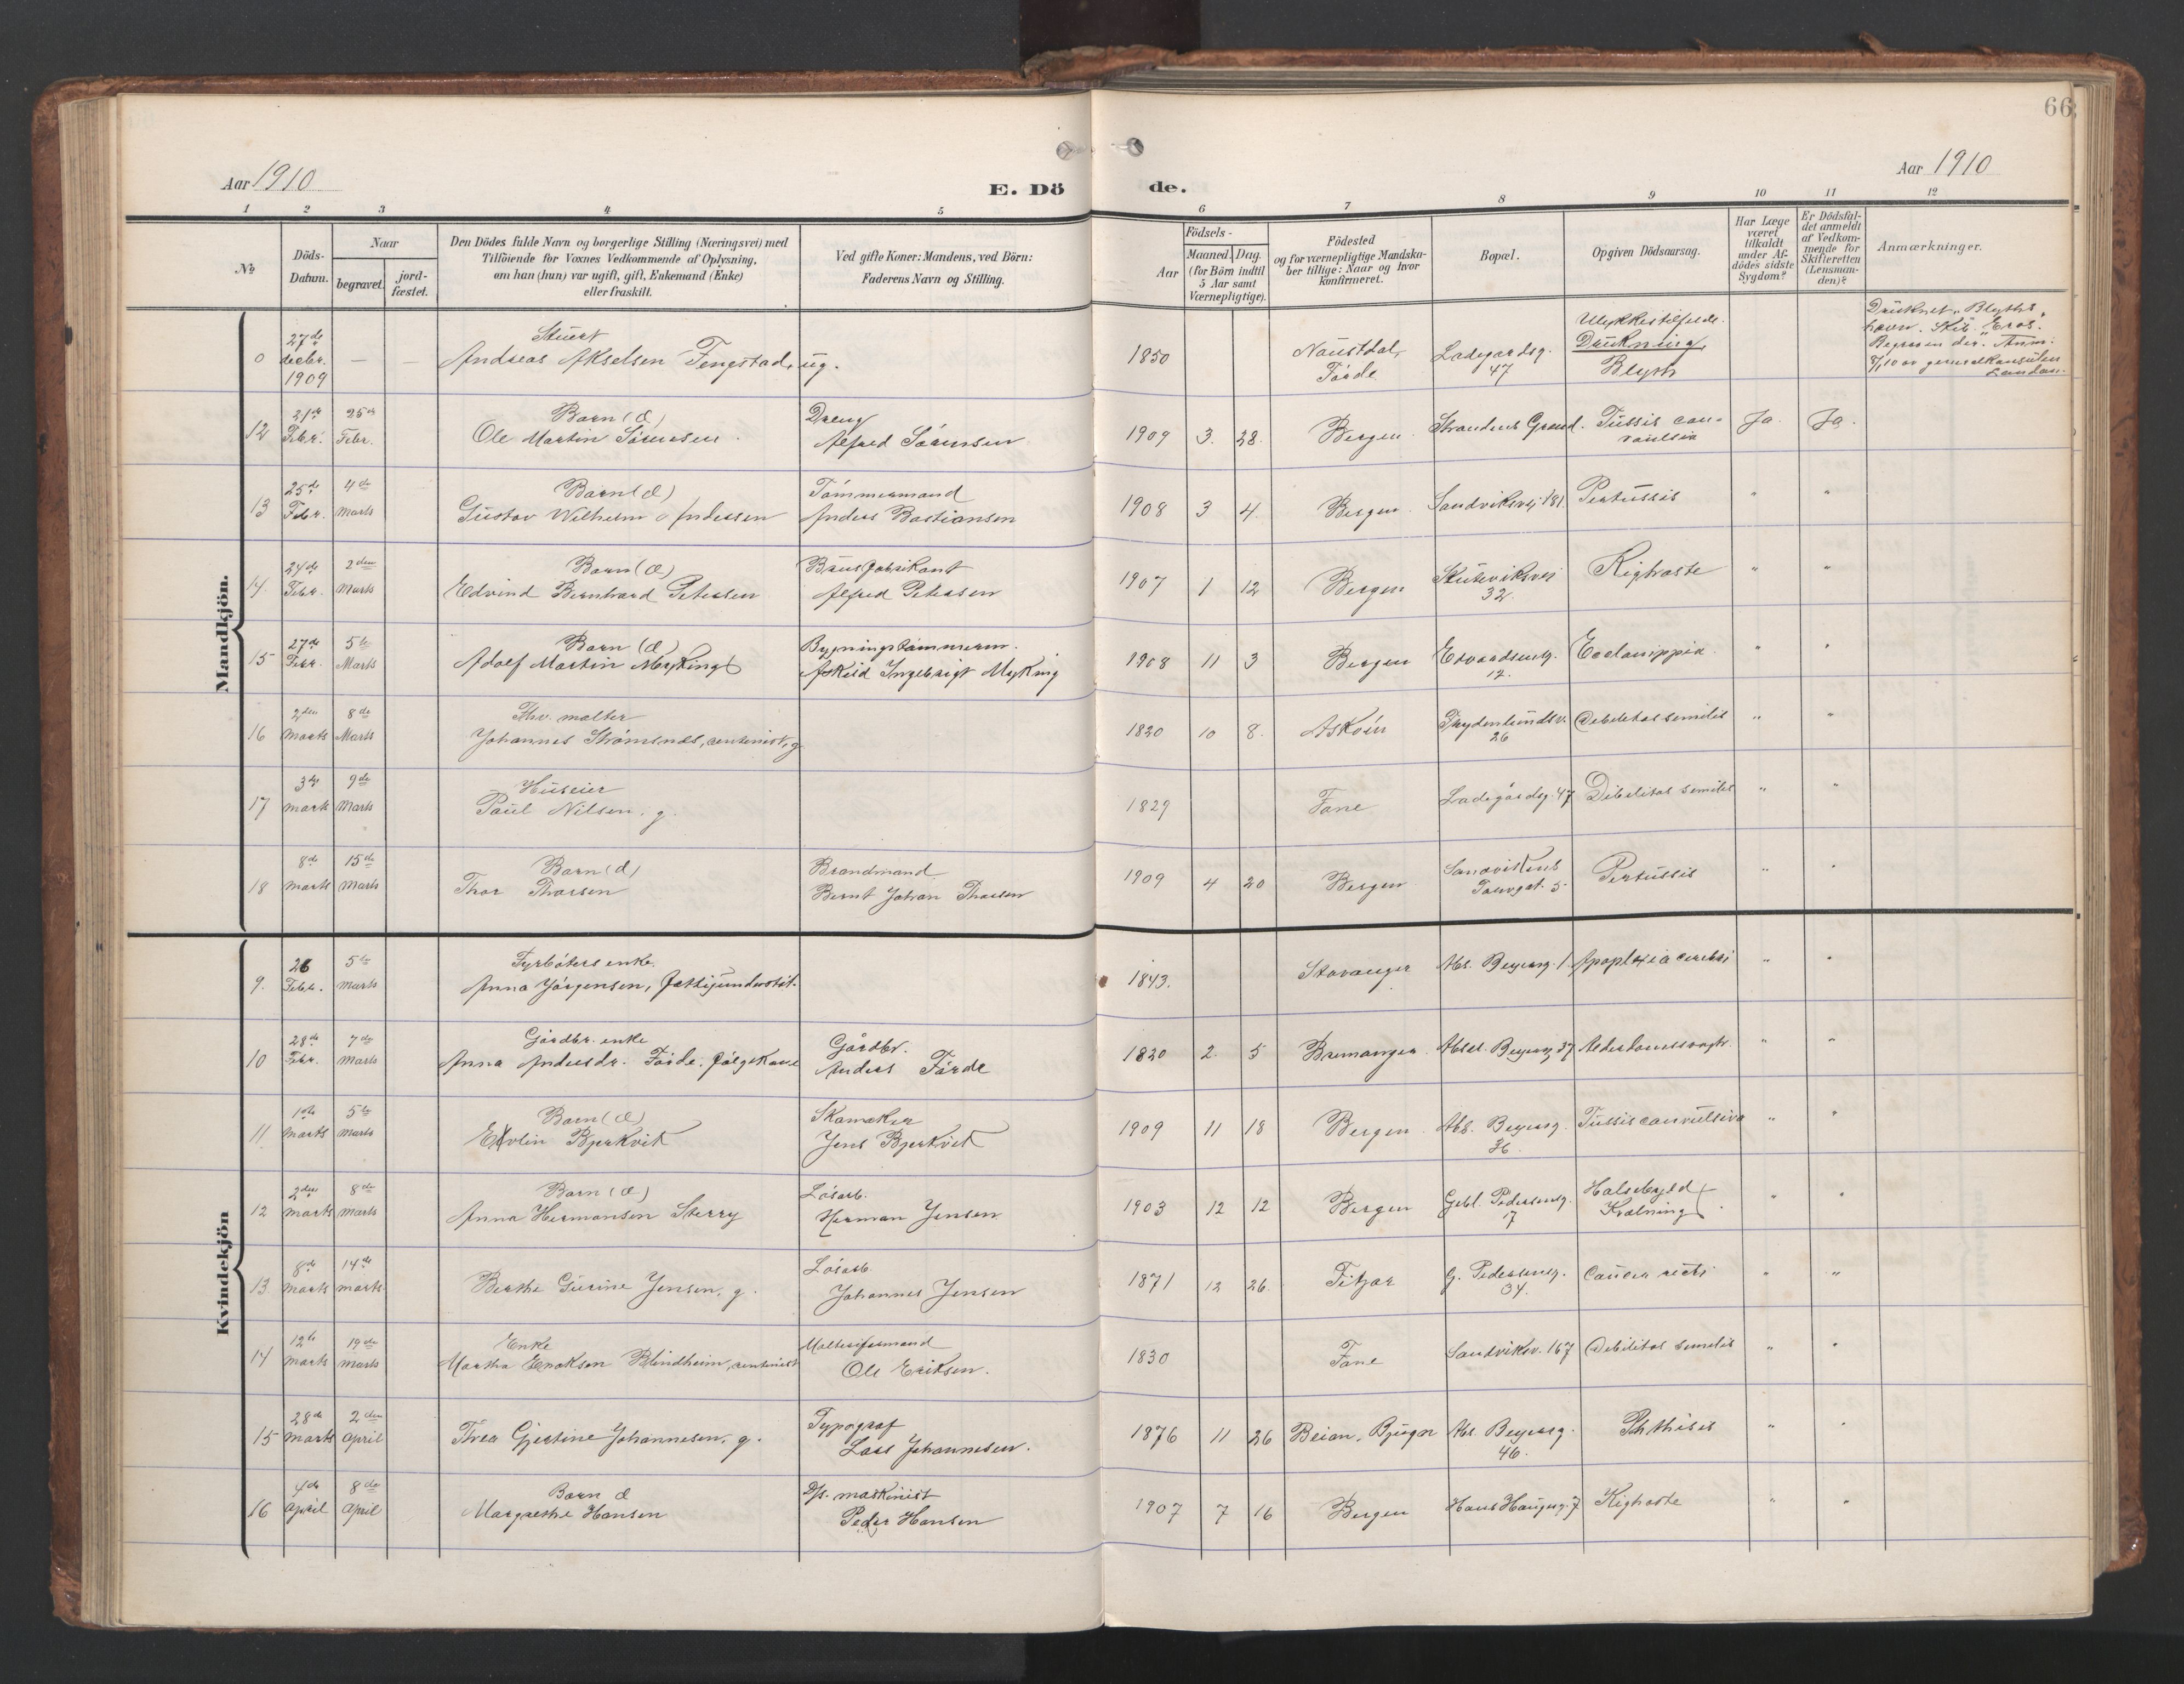 66
Aar 1910
E. Dö
de.
Aar 1910
1 2 3 4 5 6 7 8 9 10 11 12
No
Döds-Datum.
Naar
begravet.
jord-fæstet.
Den Dödes fulde Navn og borgerlige Stilling (Næringsvei) med
Tilföiende for Voxnes Vedkommende af Oplysning,
om han (hun) var ugift, gift, Enkemand (Enke)
eller fraskilt.
Ved gifte Koner: Mandens, ved Börn:
Faderens Navn og Stilling.
Födsels-
Aar
Maaned. Dag.
(for Börn indtil
5 Aar samt
Værnepligtige).
Födested
og for værnepligtige Mandska-
ber tillige: Naar og hvor
konfirmeret.
Bopæl.
Opgiven Dödsaarsag.
Har Læge
været
tilkaldt
under Af-
dödes sidste
Sygdom?
Er Dödsfal-
det anmeldt
af Vedkom-
mende for
Skifteretten
(Lensman-
den)?
Anmærkninger.
Mandkjön.
0 27de decbr. 1909 — — Stuert
Andreas Akselsen Tengstad, ug. 1850 Naustdal, Førde Ladegardsg. 47 Ulykkestilfælde. Drukning, Blyth
Druknet i Blyths
havn. Skib "Eros".
Begraven der. Anm.
generalkonsulen
London.
12 21de Febr. 25de Febr. Barn (d)
Ole Martin Sørensen Dreng
Alfred Sørensen 1909 3. 28. Bergen Strandens Grand. Tussis convulsiva Ja. Ja.
13 25de Febr. 4de Marts Barn (d)
Gustav Wilhelm Andersen Tømmermand
Anders Bastiansen 1908 3 4. Bergen Sandviksvej 181 Pertussis " "
14. 24de Febr. 2den Marts Barn (d)
Edvind Bernhard Petersen Brusfabrikant
Alfred Petersen 1907 1 12 Bergen Skuteviksvei 32. Kighoste " "
15 27de Febr. 5te Marts Barn (d)
Adolf Martin Myking Bygningstømmerm.
Askild Ingebrigt Myking 1908 11 3 Bergen Edvardsensg. 12. Eclamppia " "
16 2den Marts 8de Marts
Johannes Strømsnes, rentenist, g. 1820 10 8. Askøen Frydenlundsv. 26 Debilitas senilis " "
17 3die mark 9de Marts Huseier
Paul Nilsen, g. 1829 Fane Ladegårdsg. 47 Debilitas senilis " "
18 8de Marts 15de Marts Barn (d)
Thor Thorsen Brandmand
Bernt Johan Thorsen 1909 4 20 Bergen Sandvikens Torvgat. 5 Pertussis " "
Kvindekjön
9. 26 Febr. 5te Marts Fyrbøters enke.
Anna Jørgensen, fattigunderstøt. 1843. Stavanger Abs. Beyersg. 1. Apoplexia cerebri " "
10 28de Febr. 7de Marts Gårdbr. enke
Anna Andersdr. Førde. følgekone Gårdbr.
Anders Førde 1820 2. 5 Bremanger Absal. Beyersg 37 Alderdomssvagh. " "
11 1ste Marts 5te Marts Barn (d)
Evlin Bjerkvik Skomaker
Jens Bjerkvik 1909 11 18 Bergen Abs. Beyersg. 36 Tussis convulsiva " "
12 2den Marts 8de Marts Barn (d)
Anna Hermansen Sterry Løsarb.
Herman Jensen 1903 12 12 Bergen Gabl. Pedersensg. 17 Halsebyld (Kvælning). " "
13 8de Marts 14de Marts
Berthe Gurine Jensen, g. Løsarb.
Johannes Jensen 1871 12 26 Fitjar G. Pedersensg. 34. Cancer recti " "
14 12te Marts 19de Marts Enke
Martha Erikson Blindheim, rentenist Malteriformand
Ole Eriksen. 1830 Fane Sandviksv. 167 Debilitas senilis " "
15 28de Marts 2den April
Thea Gjertine Johannesen, g. Typograf
Lars Johannesen. 1876 11 26 Beian, Bjugn Abs. Beyersg. 46. Phthisis " "
16 4de April 8de April Barn d
Margrethe Hansen D/s. maskinist
Peder Hansen 1907 7 16 Bergen Hans Haugesg. 7 Kighoste " "